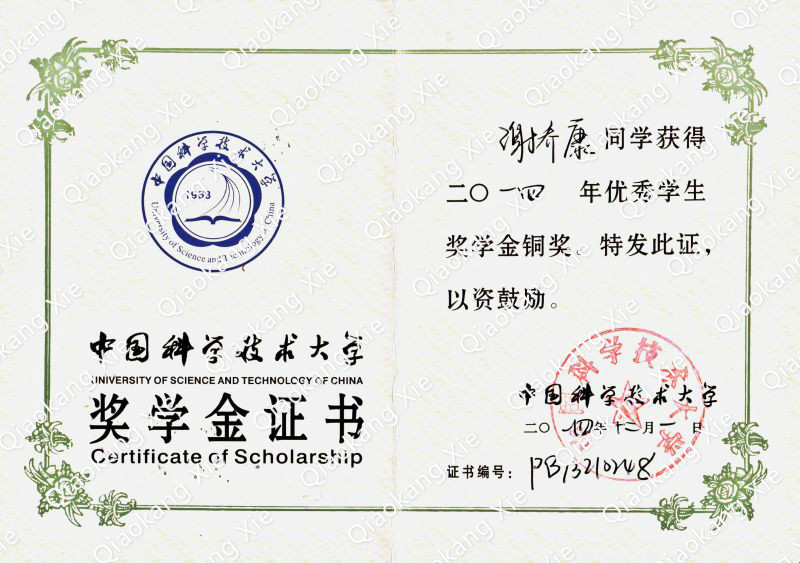 中国科学技术大学
1958
University of Science and Technology of China
中国科学技术大学
UNIVERSITY OF SCIENCE AND TECHNOLOGY OF CHINA
奖学金证书
Certificate of Scholarship
谢乔康同学获得
二〇一四年优秀学生
奖学金铜奖。特发此证，
以资鼓励。
中国科学技术大学
中国科学技术大学
二〇一四年十二月一日
证书编号：PB13210248
Qiaokang Xie